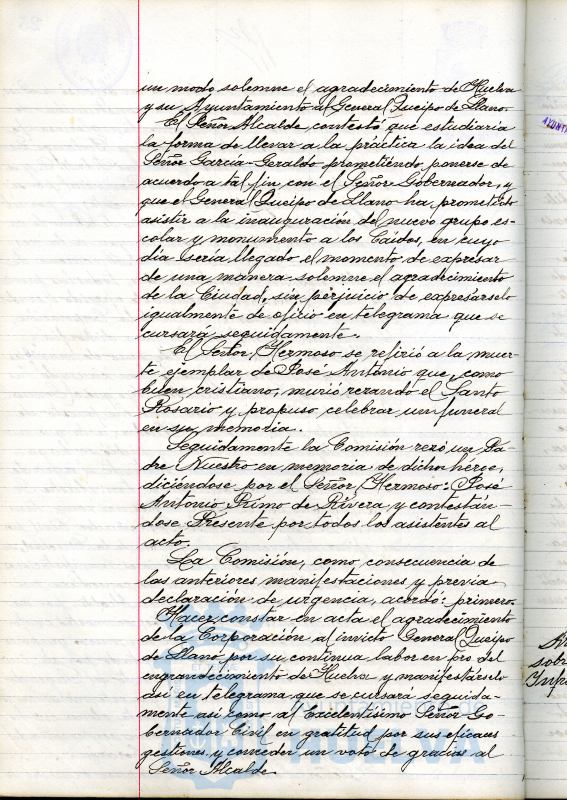 un modo solemne el agradecimiento de Huelva
y su Ayuntamiento al General Queipo de Llano.
El Señor Alcalde, contestó que estudiaría
la forma de llevar a la práctica la idea del
Señor García-Geraldo prometiendo ponerse de
acuerdo a tal fin con el Señor Gobernador, y
que el General Queipo de Llano ha prometido
asistir a la inauguración del nuevo grupo es-
colar y monumento a los Caídos, en cuyo
día sería llegado el momento de expresar
de una manera solemne el agradecimiento
de la Ciudad, sin perjuicio de expresárselo
igualmente de oficio en telegrama que se
cursará seguidamente.
El Señor Hermoso se refirió a la muer-
te ejemplar de José Antonio que, como
buen cristiano, murió rezando el Santo
Rosario y propuso celebrar un funeral
en su memoria.
Seguidamente la Comisión rezó un Pa-
dre Nuestro en memoria de dicho héroe,
diciéndose por el Señor Hermoso: José
Antonio Primo de Rivera y contestán-
dose Presente por todos los asistentes al
acto.
La Comisión, como consecuencia de
las anteriores manifestaciones y previa
declaración de urgencia, acordó: primero.
Hacer constar en acta el agradecimiento
de la Corporación al invicto General Queipo
de Llano por su continua labor en pro del
engrandecimiento de Huelva y manifestárselo
así en telegrama que se cursará seguida-
mente así como al Excelentísimo Señor Go-
bernador Civil en gratitud por sus eficaces
gestiones y conceder un voto de gracias al
Señor Alcalde.